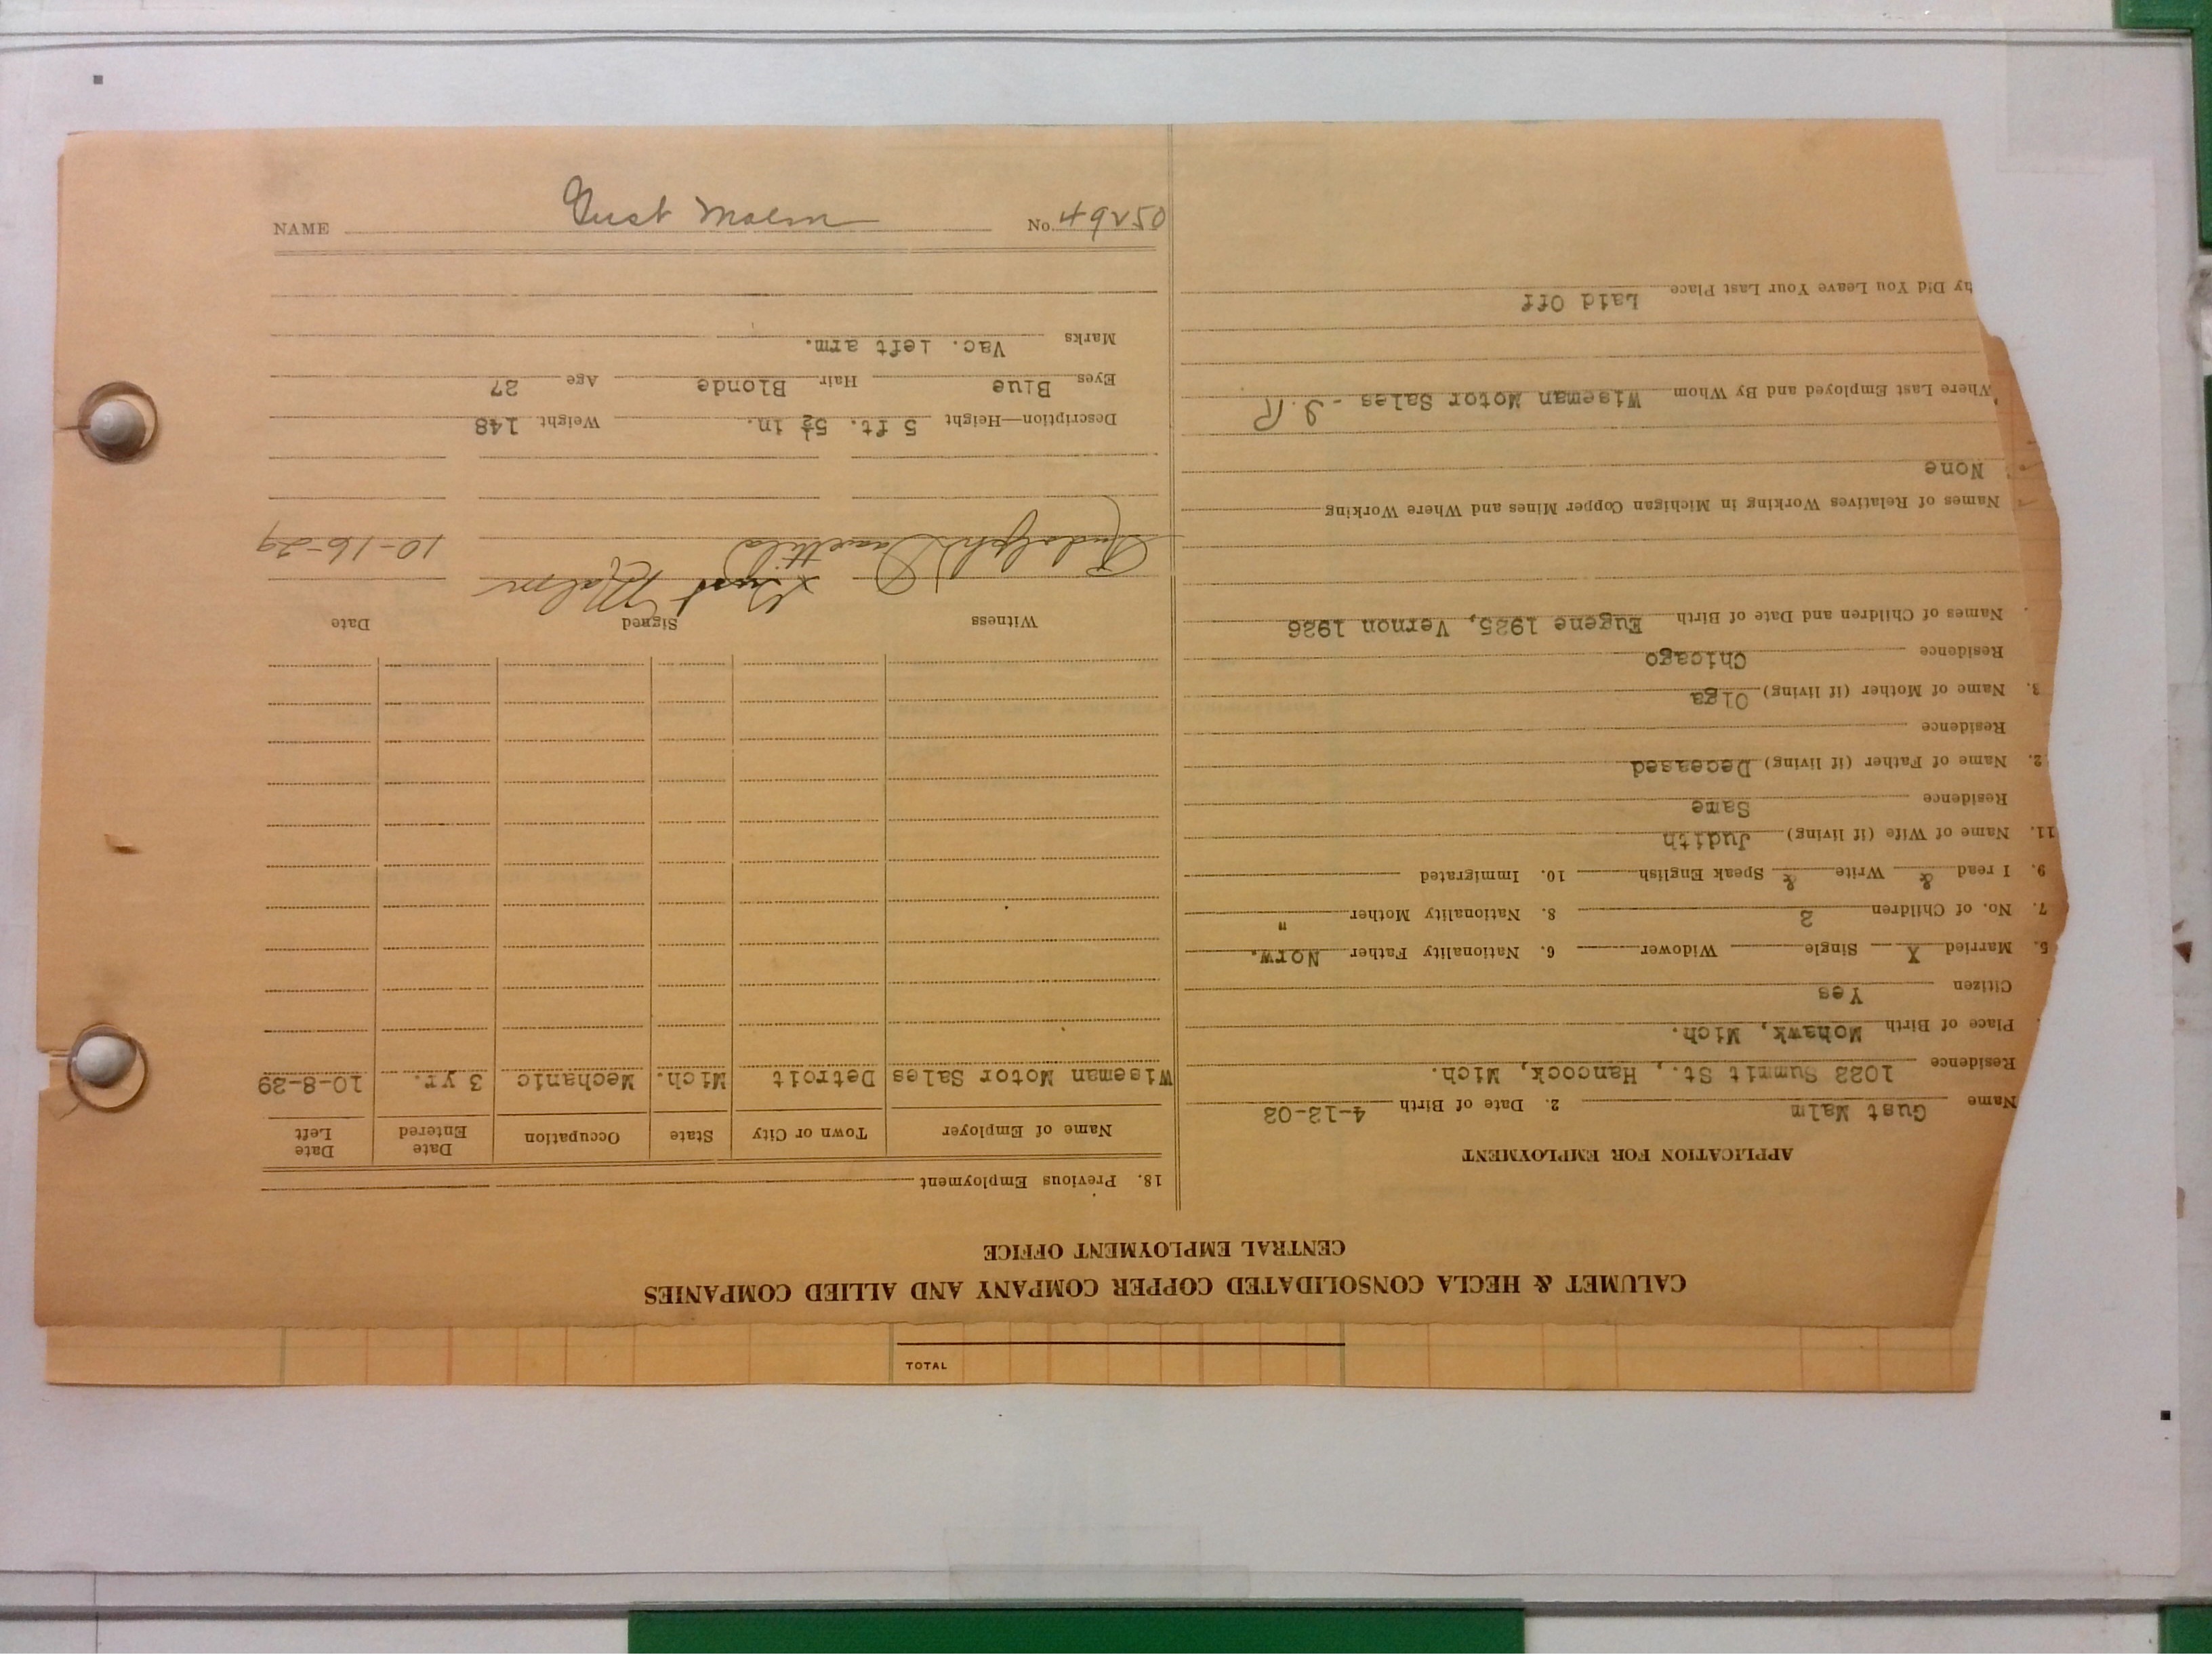 CALUMET & HECLA CONSOLIDATED COPPER COMPANY AND ALLIED COMPANIES
CENTRAL EMPLOYMENT OFFICE
APPLICATION FOR EMPLOYMENT
Name Gust Malm 2. Date of Birth 4-12-02
Residence 1022 Summit St., Hancock, Mich.
Place of Birth Mohawk, Mich.
Citizen Yes
5. Married X Single Widower 6. Nationality Father Norw.
7. No. of Children 2 8. Nationality Mother "
9. I read & Write & Speak English 10. Immigrated
11. Name of Wife (if living) Judith
Residence Same
2. Name of Father (if living) Deceased
Residence
3. Name of Mother (if living) Olga
Residence Chicago
Names of Children and Date of Birth Eugene 1925, Vernon 1926
Names of Relatives Working in Michigan Copper Mines and Where Working
None
Where Last Employed and By Whom Wiseman Motor Sales - I.R
hy Did You Leave Your Last Place Laid Off
18. Previous Employment
Name of Employer Town or City State Occupation Date Entered Date Left
Wiseman Motor Sales Detroit Mich. Mechanic 3 yr. 10-8-29
Witness Signed Date
Rudolph Gust Malm 10-16-29
Description—Height 5 ft. 5½ in. Weight 148
Eyes Blue Hair Blonde Age 27
Marks Vac. left arm.
NAME Gust Malm No. 49250
TOTAL